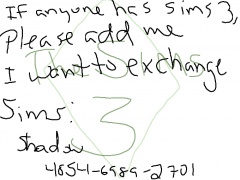 If anyone has sims 3,
Please add me
I want to exchange
Sims.
The Sims
3
Shadow
4854-6989-2701